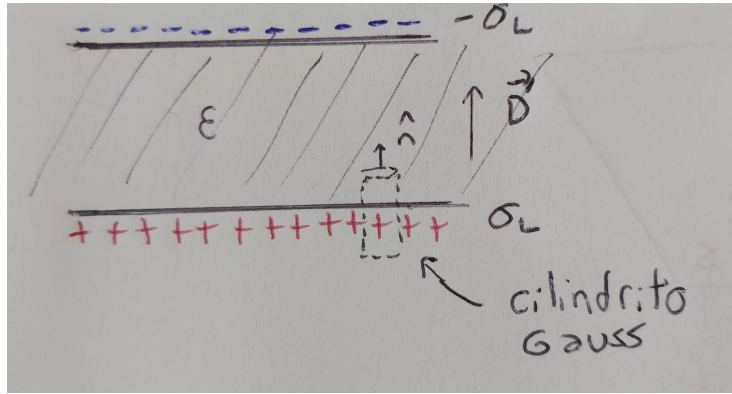 - - - - - - - - - - - -σ_L
ε
n̂
D⃗
+ + + + + + + + + + + + σ_L
cilindrito
Gauss